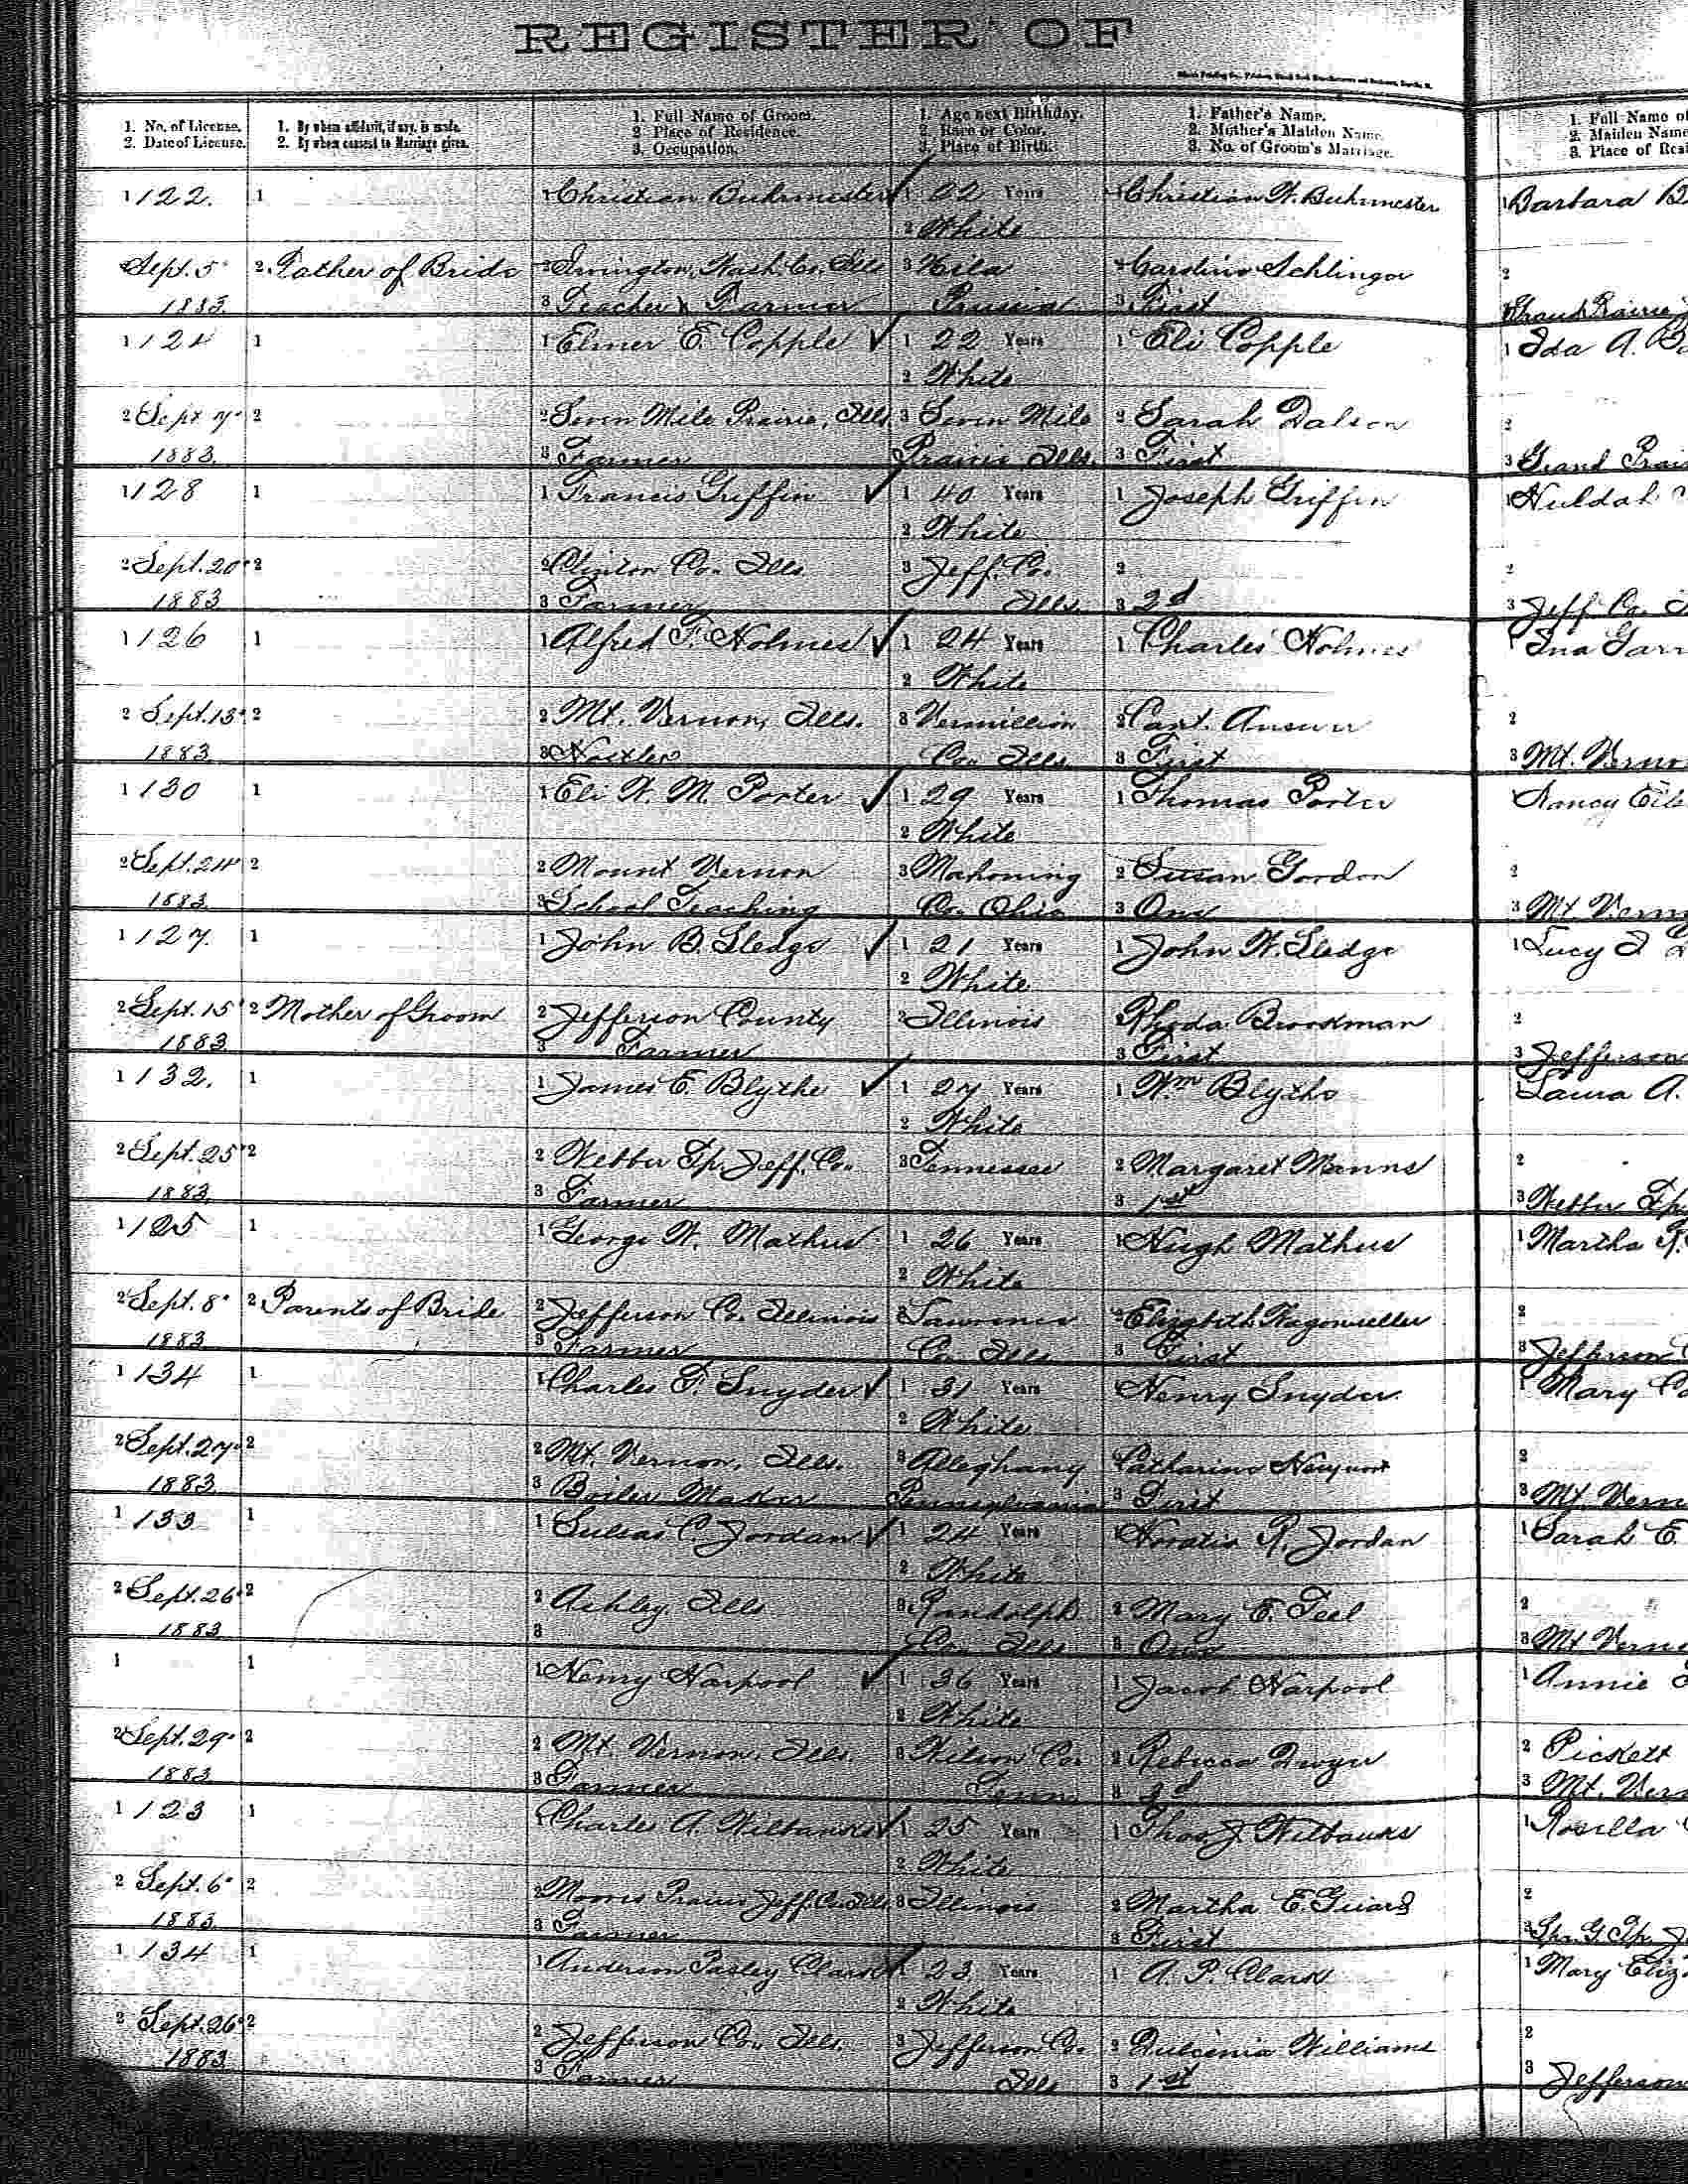 REGISTER OF
1. No. of License.
2. Date of License.
1. By whom affidavit, if any, is made.
2. By whom consent to Marriage given.
1. Full Name of Groom.
2. Place of Residence.
3. Occupation.
1. Age next Birthday.
2. Race or Color.
3. Place of Birth.
1. Father's Name.
2. Mother's Maiden Name.
3. No. of Groom's Marriage.
1. Full Name of
2. Maiden Name
3. Place of Resi
1 122. 1 1 Christian Buhrmester 1 22 Years 1 Christian W. Buhrmester 1 Barbara B
2 White
2 Sept. 5 2. Father of Bride 2 Irvington, Wash. Co. Ills 3 Prussia 2 Caroline Schlinger 2
1883. 3 Teacher & Farmer 3 First Grand Prairie
1 124 1 1 Elmer E. Copple 1 22 Years 1 Eli Copple 1 Ida A.
2 White
2 Sept 7 2 2 Seven Mile Prairie, Ills 3 Seven Mile 2 Sarah 2
1883. 3 Farmer Prairie Ills. 3 First 3 Grand Prai
1 128 1 1 Francis Griffin 1 40 Years 1 Joseph Griffin 1 Huldah
2 White
2 Sept. 20 2 2 Clinton Co. Ills 3 Jeff. Co. 2 2
1883 3 Farmer Ills. 3 2d 3 Jeff. Co.
1 126 1 1 Alfred F. Holmes 1 24 Years 1 Charles Holmes 1 Ina Garr
2 White
2 Sept. 13 2 2 Mt. Vernon, Ills. 3 Vermillion 2
1883 3 Co. Ills 3 First 3 Mt. Verno
1 130 1 1 Eli W. M. Porter 1 29 Years 1 Thomas Porter Nancy
2 White
2 Sept. 24 2 2 Mount Vernon 3 Mahoning 2 Susan Gordon 2
1883. 3 School Teaching Co. Ohio 3 One 3 Mt Vern
1 127. 1 1 John B. Sledge 1 21 Years 1 John W. Sledge 1 Lucy
2 White
2 Sept. 15 2 Mother of Groom 2 Jefferson County 3 Illinois 2 Rhoda Brookman 2
1883. 3 Farmer 3 First 3 Jefferson
1 132. 1 1 James E. Blythe 1 27 Years 1 Wm Blythe Laura A.
2 White
2 Sept. 25 2 2 Webber Tp. Jeff. Co. 3 Tennessee 2 Margaret Manns 2
1883. 3 Farmer 3 1st 3 Webber Tp
1 125 1 1 George W. Mathus 1 26 Years 1 Hugh Mathus 1 Martha
2 White
2 Sept. 8 2 Parents of Bride 2 Jefferson Co. Illinois 3 Lawrence 2 Elizabeth Wagonseller 2
1883 3 Farmer Co. Ills 3 First 3 Jefferson
1 134 1 1 Charles F. Snyder 1 31 Years Henry Snyder. 1 Mary
2 White
2 Sept. 27 2 2 Mt. Vernon, Ills. 3 Alleghany Catharine 2
1883 3 Boiler Maker Pennsylvania 3 First 3 Mt. Vern
1 133 1 1 C. Jordan 1 24 Years 1 Horatio R. Jordan 1 Sarah E
2 White
2 Sept. 26 2 2 Ashley Ills 3 Randolph 2 Mary E. Teel 2
1883 3 Co. Ills 3 One 3 Mt Verno
1 1 1 Henry Harpool 1 36 Years 1 Jacob Harpool 1 Annie
2 White
2 Sept. 29 2 2 Mt. Vernon, Ills. 3 Wilson Co. 2 Rebecca Dwyer 2 Pickett
1883 3 Farmer Tenn 3 3d 3 Mt. Vern
1 123 1 1 Charles A. Wilbanks 1 25 Years 1 Thos. J. Wilbanks 1 Rosella
2 White
2 Sept. 6 2 2 Moores Prairie Jeff. Co. Ills 3 Illinois 2 Martha E. 2
1883. 3 Farmer 3 First 3 Sp. G. Tp. J
1 134 1 1 Anderson Pasley Clark 1 23 Years 1 A. P. Clark 1 Mary Eliz
2 White
2 Sept. 26 2 2 Jefferson Co. Ills. 3 Jefferson Co. 2 Dulcinia Williams 2
1883 3 Farmer Ills 3 1st 3 Jefferson